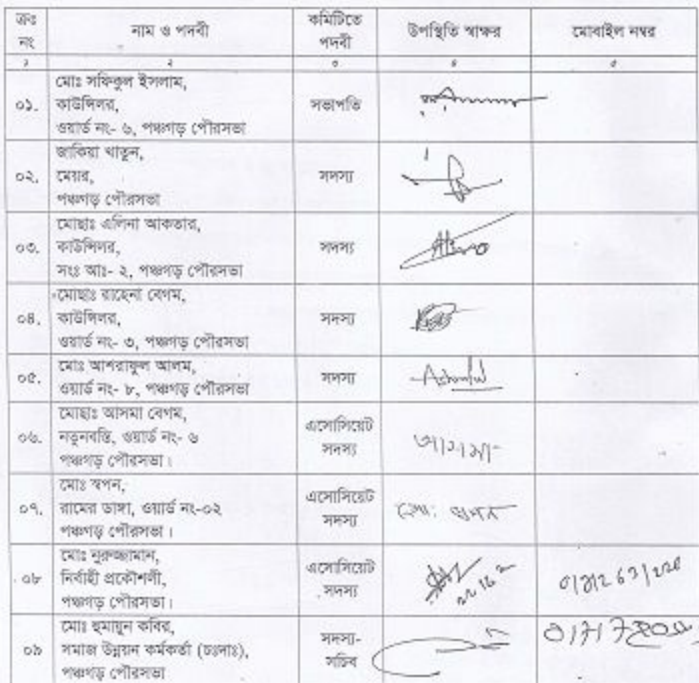 ক্রঃ নং
নাম ও পদবী
কমিটিতে পদবী
উপস্থিতি স্বাক্ষর
মোবাইল নম্বর
১ ২ ৩ ৪ ৫
০১.
মোঃ সফিকুল ইসলাম,
কাউন্সিলর,
ওয়ার্ড নং- ৬, পঞ্চগড় পৌরসভা
সভাপতি
০২.
জাকিয়া খাতুন,
মেয়র,
পঞ্চগড় পৌরসভা
সদস্য
০৩.
মোছাঃ এলিনা আকতার,
কাউন্সিলর,
সংঃ আঃ- ২, পঞ্চগড় পৌরসভা
সদস্য
০৪.
মোছাঃ রাহেনা বেগম,
কাউন্সিলর,
ওয়ার্ড নং- ৩, পঞ্চগড় পৌরসভা
সদস্য
০৫.
মোঃ আশরাফুল আলম,
ওয়ার্ড নং- ৮, পঞ্চগড় পৌরসভা
সদস্য
০৬.
মোছাঃ আসমা বেগম,
নতুনবস্তি, ওয়ার্ড নং- ৬
পঞ্চগড় পৌরসভা।
এসোসিয়েট
সদস্য
আসমা
০৭.
মোঃ স্বপন,
রামের ডাঙ্গা, ওয়ার্ড নং-০২
পঞ্চগড় পৌরসভা।
এসোসিয়েট
সদস্য
মো: স্বপন
০৮
মোঃ নুরুজ্জামান,
নির্বাহী প্রকৌশলী,
পঞ্চগড় পৌরসভা।
এসোসিয়েট
সদস্য
০৯
মোঃ হুমায়ুন কবির,
সমাজ উন্নয়ন কর্মকর্তা (চঃদাঃ),
পঞ্চগড় পৌরসভা
সদস্য-
সচিব